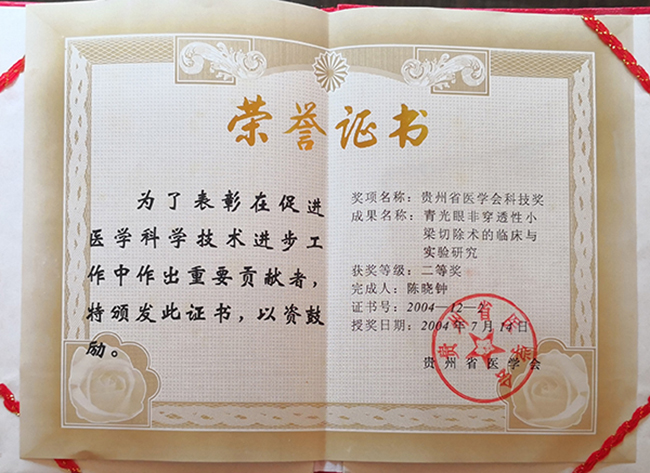 荣誉证书
为了表彰在促进
医学科学技术进步工
作中作出重要贡献者，
特颁发此证书，以资鼓
励。
奖项名称：贵州省医学会科技奖
成果名称：青光眼非穿透性小
梁切除术的临床与
实验研究
获奖等级：二等奖
完成人：陈晓钟
证书号：2004—12—2
授奖日期：2004年7月14日
贵州省医学会
贵州省医学会